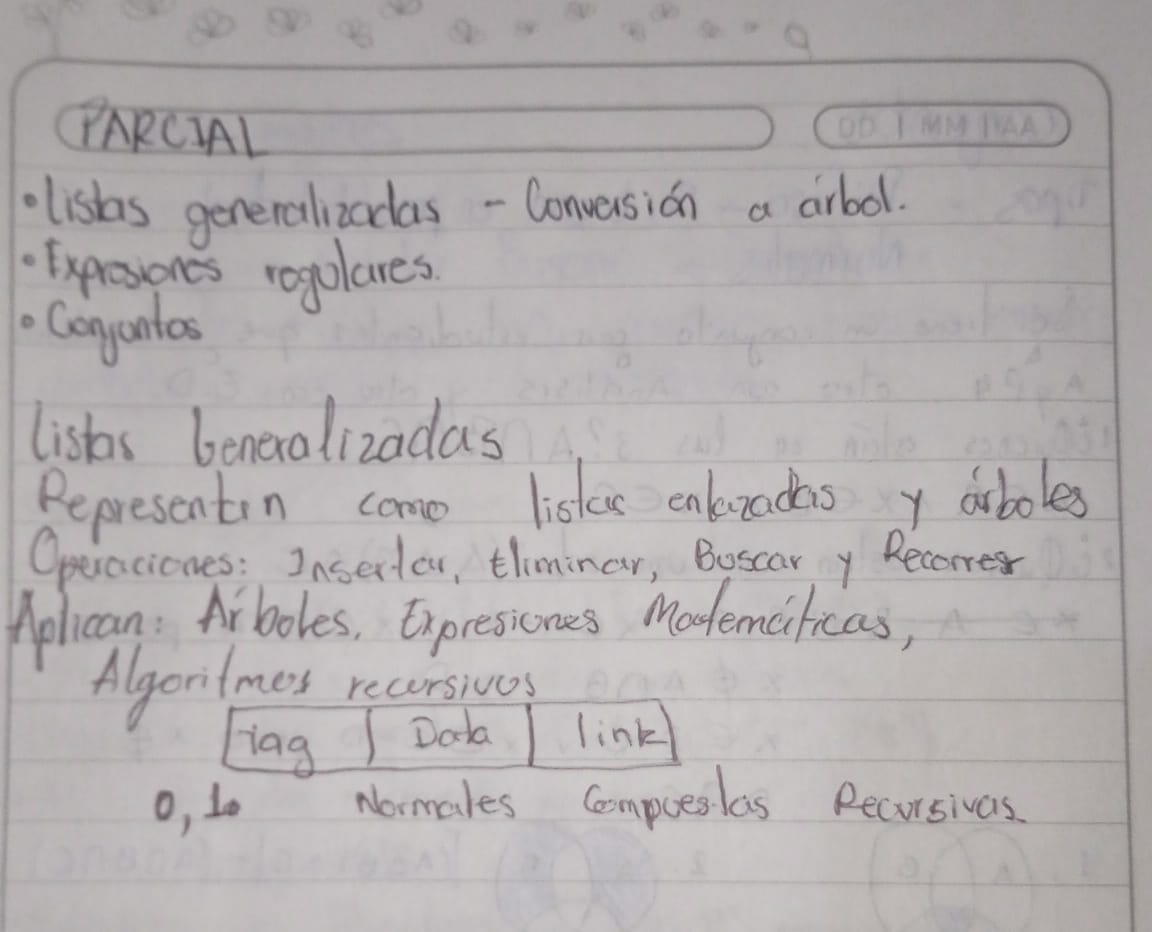 PARCIAL
DD / MM / AA
• Listas generalizadas - Conversión a árbol.
• Expresiones regulares.
• Conjuntos
Listas Generalizadas
Representan como listas enlazadas y árboles
Operaciones: Insertar, Eliminar, Buscar y Recorrer
Aplican: Árboles, Expresiones Matemáticas,
Algoritmos recursivos
Tag | Data | link
0, 1 Normales Compuestas Recursivas